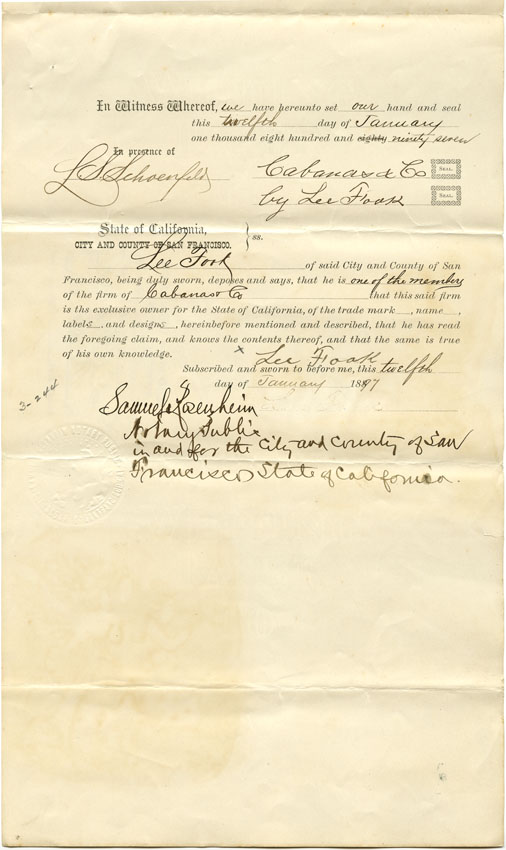 In Witness Whereof, we have hereunto set our hand and seal
this twelfth day of January
one thousand eight hundred and eighty ninety seven
In presence of
L S Schoenfeld
Cabanas & Co SEAL.
by Lee Fook SEAL.
State of California,
CITY AND COUNTY OF SAN FRANCISCO. } ss.
Lee Fook of said City and County of San
Francisco, being duly sworn, deposes and says, that he is one of the members
of the firm of Cabanas & Co that said firm
is ths exclusive owner for the State of California, of the trade mark , name ,
labels , and designs , hereinbefore mentioned and described, that he has read
the foregoing claim, and knows the contents thereof, and that the same is true
of his own knowledge.
x Lee Fook
Subscribed and sworn to before me, this twelfth
day of January 1897
3-244
Samuel Rosenheim
Notary Public
in and for the City and County of San
Francisco State of California.